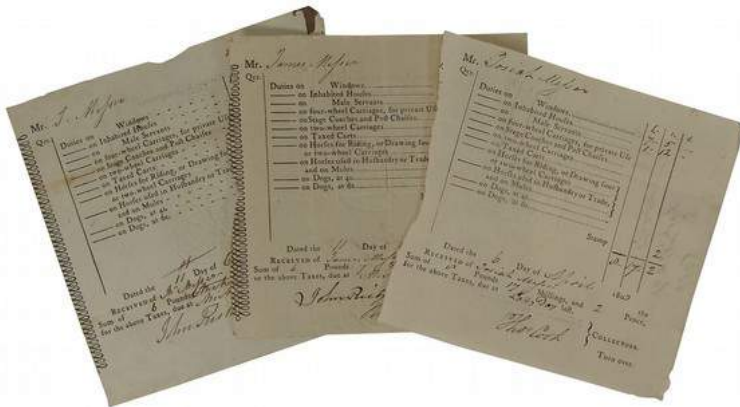 Mr. J. Messer
Qrs.
Duties on Windows
on Inhabited Houses
on Male Servants
on four-wheel Carriages, for private Use
on Stage Coaches and Post Chaises
on two-wheel Carriages
on Taxed Carts
on Horses for Riding, or Drawing four
or two-wheel Carriages
on Horses used in Husbandry or Trade,
and on Mules
on Dogs, at 4s.
on Dogs, at 6s.
Dated the Day of
RECEIVED of Mr
Sum of Pounds
for the above Taxes, due at
John
Mr. James Messer
Qrs.
Duties on Windows
on Inhabited Houses
on Male Servants
on four-wheel Carriages, for private Use
on Stage Coaches and Post Chaises
on two-wheel Carriages
on Taxed Carts
on Horses for Riding, or Drawing four
or two-wheel Carriages
on Horses used in Husbandry or Trade,
and on Mules
on Dogs, at 4s.
on Dogs, at 6s.
Dated the Day of
RECEIVED of James Messer
Sum of Pounds
for the above Taxes, due at
John
Mr. Josiah Messer
Qrs.
Duties on Windows
on Inhabited Houses
on Male Servants
on four-wheel Carriages, for private Use
on Stage Coaches and Post Chaises
on two-wheel Carriages
on Taxed Carts
on Horses for Riding, or Drawing four
or two-wheel Carriages
on Horses used in Husbandry or Trade,
and on Mules
on Dogs, at 4s.
on Dogs, at 6s.
Stamp
Dated the 6 Day of April
RECEIVED of Josiah Messer the
Sum of Pounds 17 Shillings, and 2 Pence,
for the above Taxes, due at Lady Day last.
Thos Cook } COLLECTORS.
Turn over.